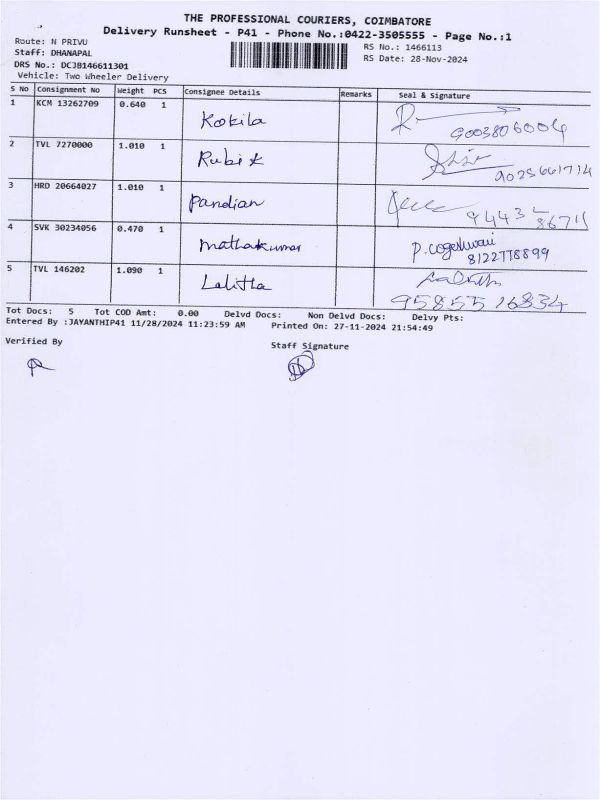 THE PROFESSIONAL COURIERS, COIMBATORE
Delivery Runsheet - P41 - Phone No.:0422-3505555 - Page No.:1
Route: N PRIVU
RS No.: 1466113
Staff: DHANAPAL
RS Date: 28-Nov-2024
DRS No.: DCJB146611301
Vehicle: Two Wheeler Delivery
S No Consignment No Weight PCS Consignee Details Remarks Seal & Signature
1 KCM 13262709 0.640 1 Kokila 9003806004
2 TVL 7270000 1.010 1 Rubi
3 HRD 20664027 1.010 1 Pandian
4 SVK 30234056 0.470 1 Mathakumar P. 8122778899
5 TVL 146202 1.090 1 Lalitha Lalitha 9585516834
Tot Docs: 5 Tot COD Amt: 0.00 Delvd Docs: Non Delvd Docs: Delvy Pts:
Entered By :JAYANTHIP41 11/28/2024 11:23:59 AM Printed On: 27-11-2024 21:54:49
Verified By
Staff Signature